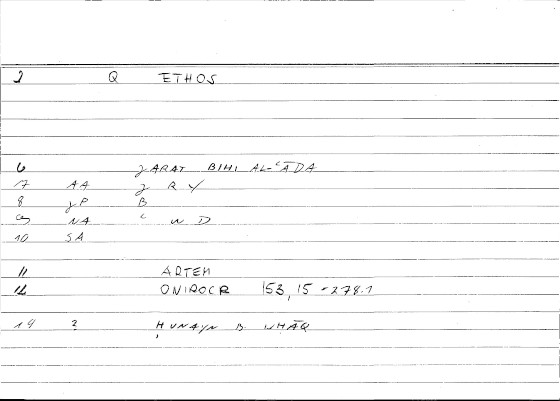 2 Q ETHOS
6 ǧARAT BIHI AL-ʿĀDA
7 AA ǧ R Y
8 ǧP B
9 NA ʿ W D
10 SA
11 ARTEM
12 ONIROCR 153,15 - 278.1
14 ? ḤUNAYN B. ISḤĀQ